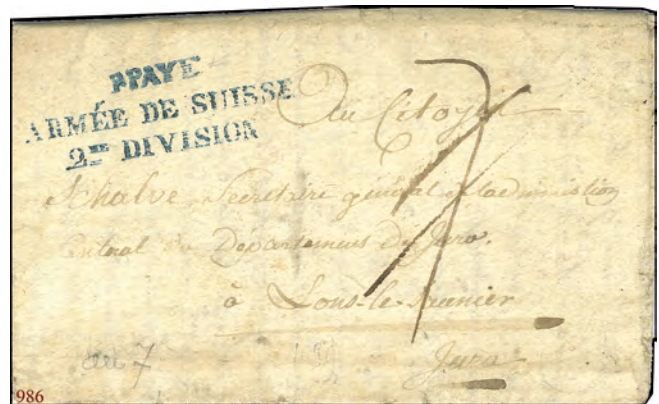 PPAYÉ
ARMÉE DE SUISSE
2me DIVISION
Au Citoyen
Schalve Secretaire général
Central du Département du Jura.
à Lons-le-Saunier
Jura
7
986